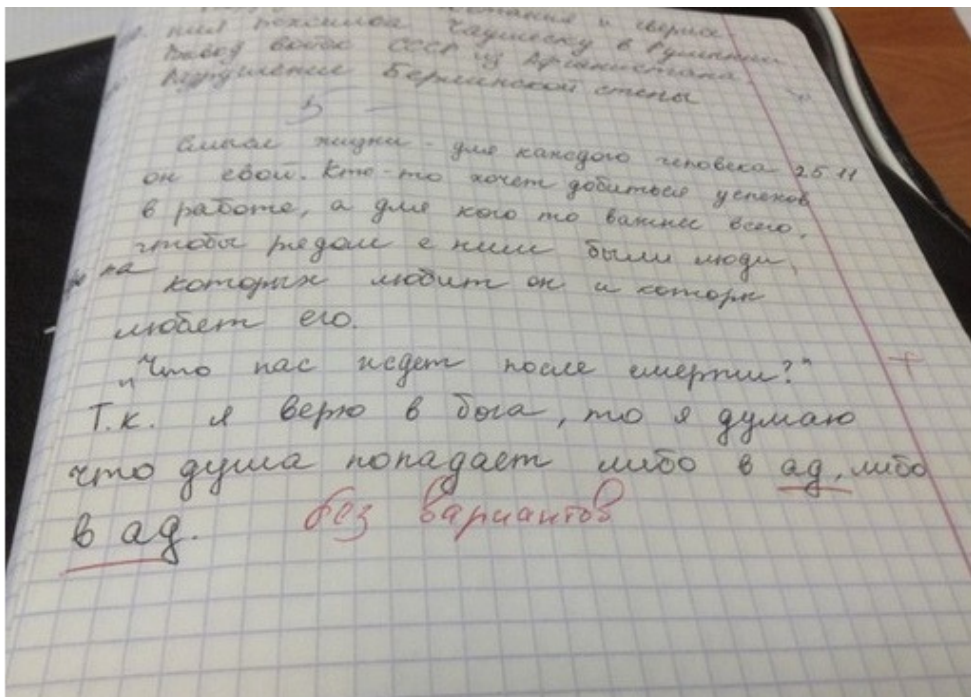 и сверже
ния режима Чаушеску в Румынии
Вывод войск СССР из Афганистана
Разрушение Берлинской стены
5 -
Смысл жизни - для каждого человека 25 11
он свой. Кто-то хочет добиться успехов
в работе, а для кого то важнее всего,
чтобы рядом с ним были люди,
на которых любит он и которы
любет его.
"Что нас ждет после смерти?"
Т.к. я верю в бога, то я думаю
что душа попадает либо в ад, либо
в ад. без вариантов